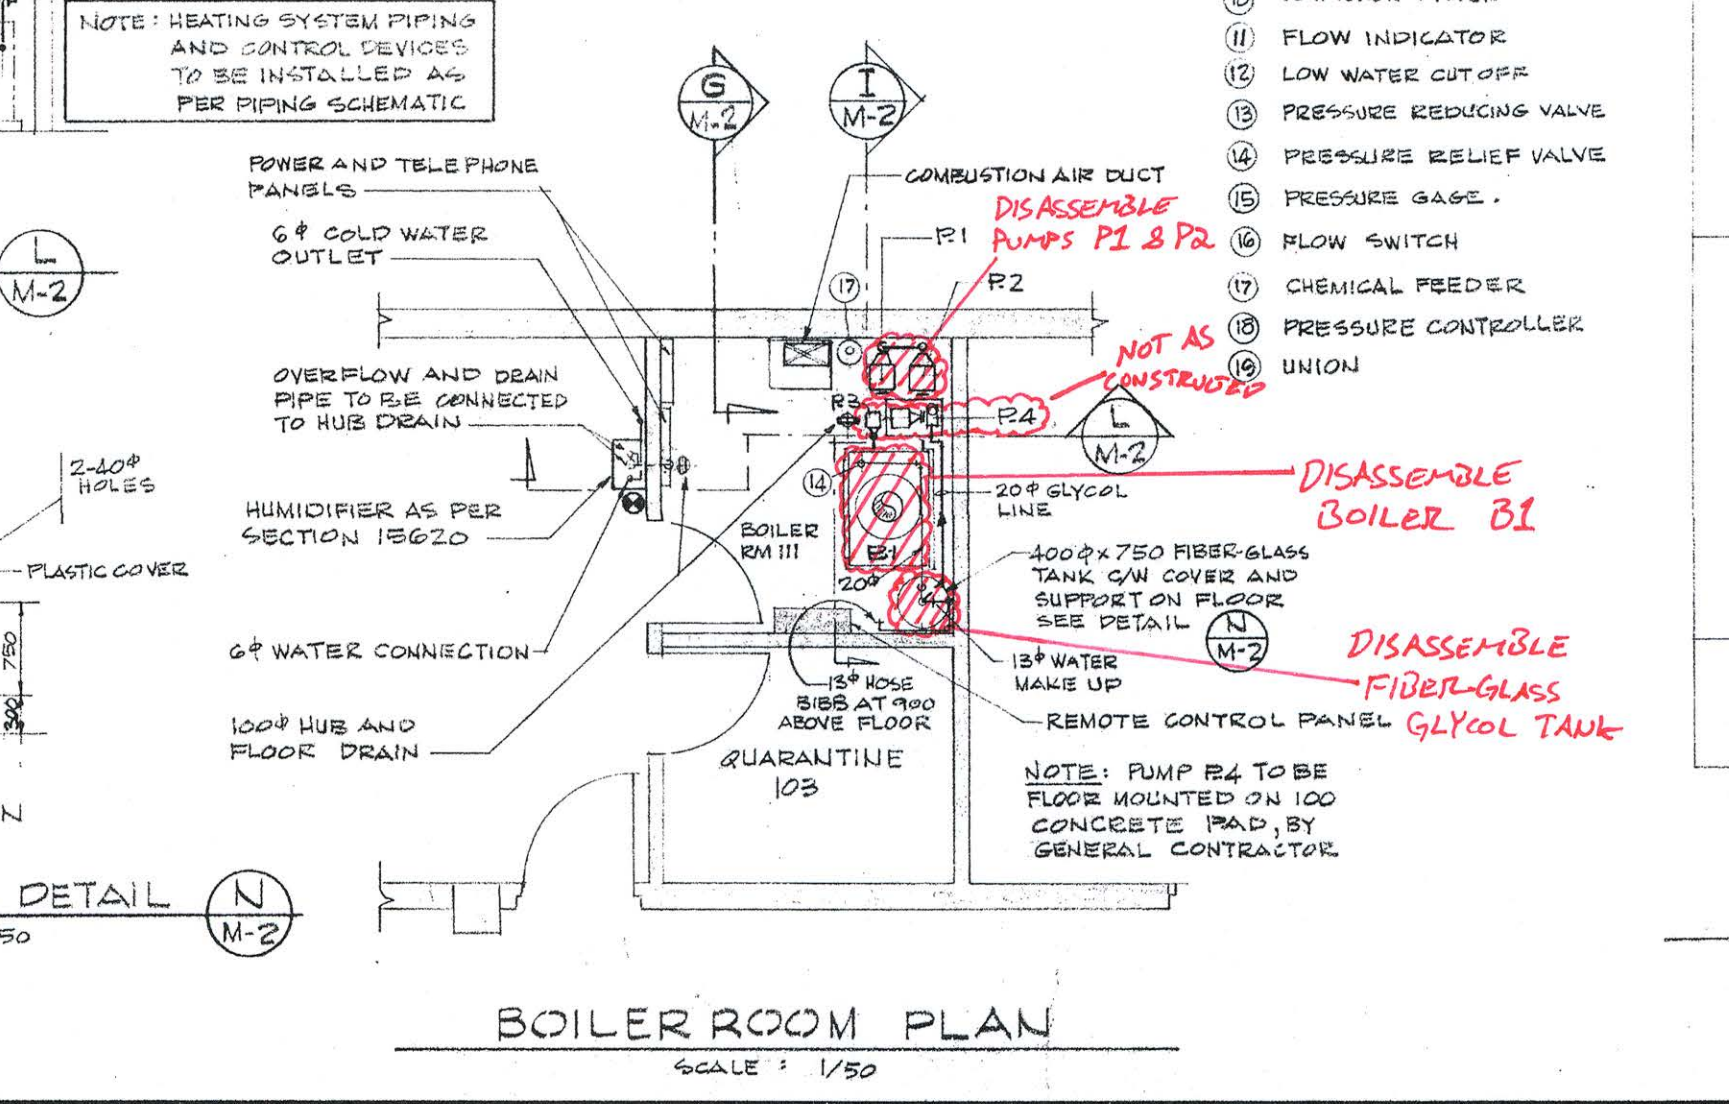 NOTE: HEATING SYSTEM PIPING
AND CONTROL DEVICES
TO BE INSTALLED AS
PER PIPING SCHEMATIC
G
M-2
I
M-2
11 FLOW INDICATOR
12 LOW WATER CUT OFF
13 PRESSURE REDUCING VALVE
14 PRESSURE RELIEF VALVE
15 PRESSURE GAGE.
16 FLOW SWITCH
17 CHEMICAL FEEDER
18 PRESSURE CONTROLLER
19 UNION
POWER AND TELEPHONE
PANELS
6φ COLD WATER
OUTLET
L
M-2
OVERFLOW AND DRAIN
PIPE TO BE CONNECTED
TO HUB DRAIN
2-40φ
HOLES
HUMIDIFIER AS PER
SECTION 15620
PLASTIC COVER
6φ WATER CONNECTION
100φ HUB AND
FLOOR DRAIN
750
300
N
COMBUSTION AIR DUCT
DISASSEMBLE
PUMPS P1 & P2
P.1
P.2
17
NOT AS
CONSTRUCTED
P.3
P.4
L
M-2
14
DISASSEMBLE
BOILER B1
20φ GLYCOL
LINE
BOILER
RM 111
B-1
20φ
400φ x 750 FIBER-GLASS
TANK C/W COVER AND
SUPPORT ON FLOOR
SEE DETAIL
N
M-2
DISASSEMBLE
FIBER-GLASS
GLYCOL TANK
13φ WATER
MAKE UP
13φ HOSE
BIBB AT 900
ABOVE FLOOR
REMOTE CONTROL PANEL
QUARANTINE
103
NOTE: PUMP P.4 TO BE
FLOOR MOUNTED ON 100
CONCRETE PAD, BY
GENERAL CONTRACTOR
DETAIL
N
M-2
50
BOILER ROOM PLAN
SCALE : 1/50